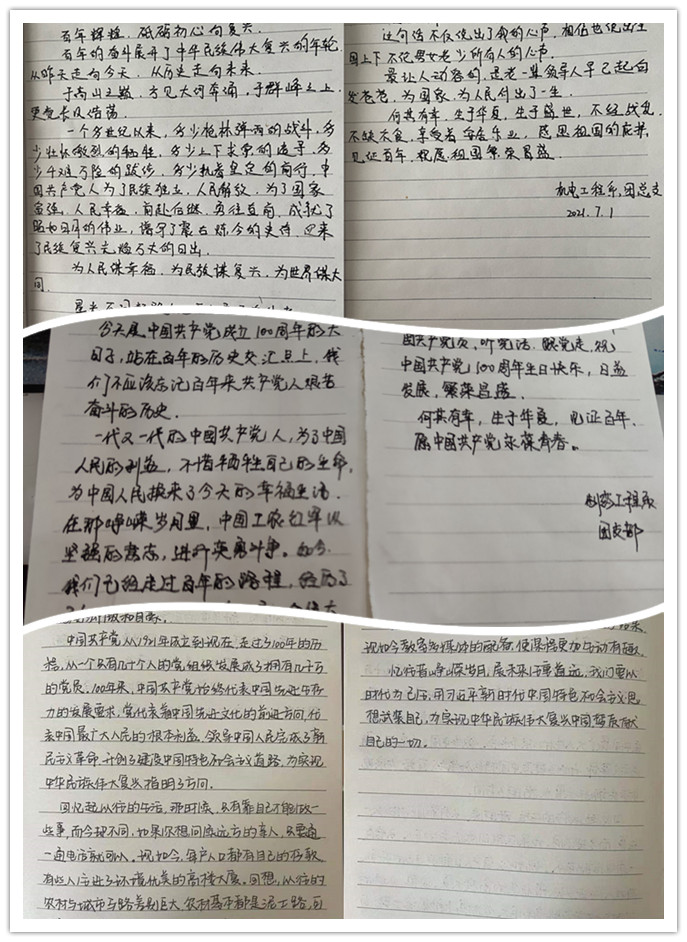 百年辉煌，砥砺初心向复兴.
百年的奋斗展开了中华民族伟大复兴的年轮.
从昨天走向今天，从历史走向未来.
于高山之巅，方见大河奔涌，于群峰之上，
更觉长风浩荡.
一个多世纪以来，多少枪林弹雨的战斗，多
少壮怀激烈的牺牲，多少上下求索的追寻，多
少千难万险的跋涉，多少执着坚定的前行，中
国共产党人为了民族独立，人民解放，为了国家
富强，人民幸福，前赴后继，勇往直前，成就了
昭如日月的伟业，谱写了震古烁今的史诗，迎来
了民族复兴光焰万丈的日出.
为人民谋幸福，为民族谋复兴，为世界谋大
同.
这句话不仅说出了我的心声，相信也说出全
国上下不论男女老少所有人的心声.
最让人动容的，是老一辈领导人早已起白
发苍苍，为国家，为人民付出了一生.
何其有幸，生于华夏，生于盛世，不经战乱，
不缺衣食，享受着安居乐业，感恩祖国的庇护，
见证百年，祝愿祖国繁荣昌盛.
机电工程系团总支
2021.7.1
今天是中国共产党成立100周年的大
日子，站在百年的历史交汇点上，我
们不应该忘记百年来共产党人艰苦
奋斗的历史.
一代又一代的中国共产党人，为了中国
人民的利益，不惜牺牲自己的生命，
为中国人民换来了今天的幸福生活.
在那峥嵘岁月里，中国工农红军以
坚强的意志，进行英勇斗争。如今，
我们已经走过百年的路程，经历了
国共产党员，听党话，跟党走，祝
中国共产党100周年生日快乐，日益
发展，繁荣昌盛.
何其有幸，生于华夏，见证百年，
愿中国共产党永葆青春。
制药工程系
团支部
中国共产党从1921年成立到现在，走过了100年的历
程，从一个只有几十个人的党组织发展成了拥有几千万
的党员，100年来，中国共产党始终代表中国先进生产
力的发展要求，党代表着中国先进文化的前进方向，代
表中国最广大人民的根本利益，领导中国人民完成了新
民主义革命，开创了建设中国特色社会主义道路，为实现
中华民族伟大复兴指明了方向.
回忆起以往的生活，那时候，只有靠自己才能做一
些事，而今却不同，如果你想问候远方的亲人，只要通
一通电话就可以。现如今，每户人口都有自己的存款，
有些人住进了环境优美的高楼大厦。回想，以往的
农村与城市马路差别巨大，农村基本都是泥土路，可
现如今教育如媒体的配备，使课程更加生动有趣.
忆往昔峥嵘岁月，展未来任重道远，我们要以
时代为己任，用习近平新时代中国特色社会主义思
想武装自己，为实现中华民族伟大复兴中国梦贡献
自己的一切。